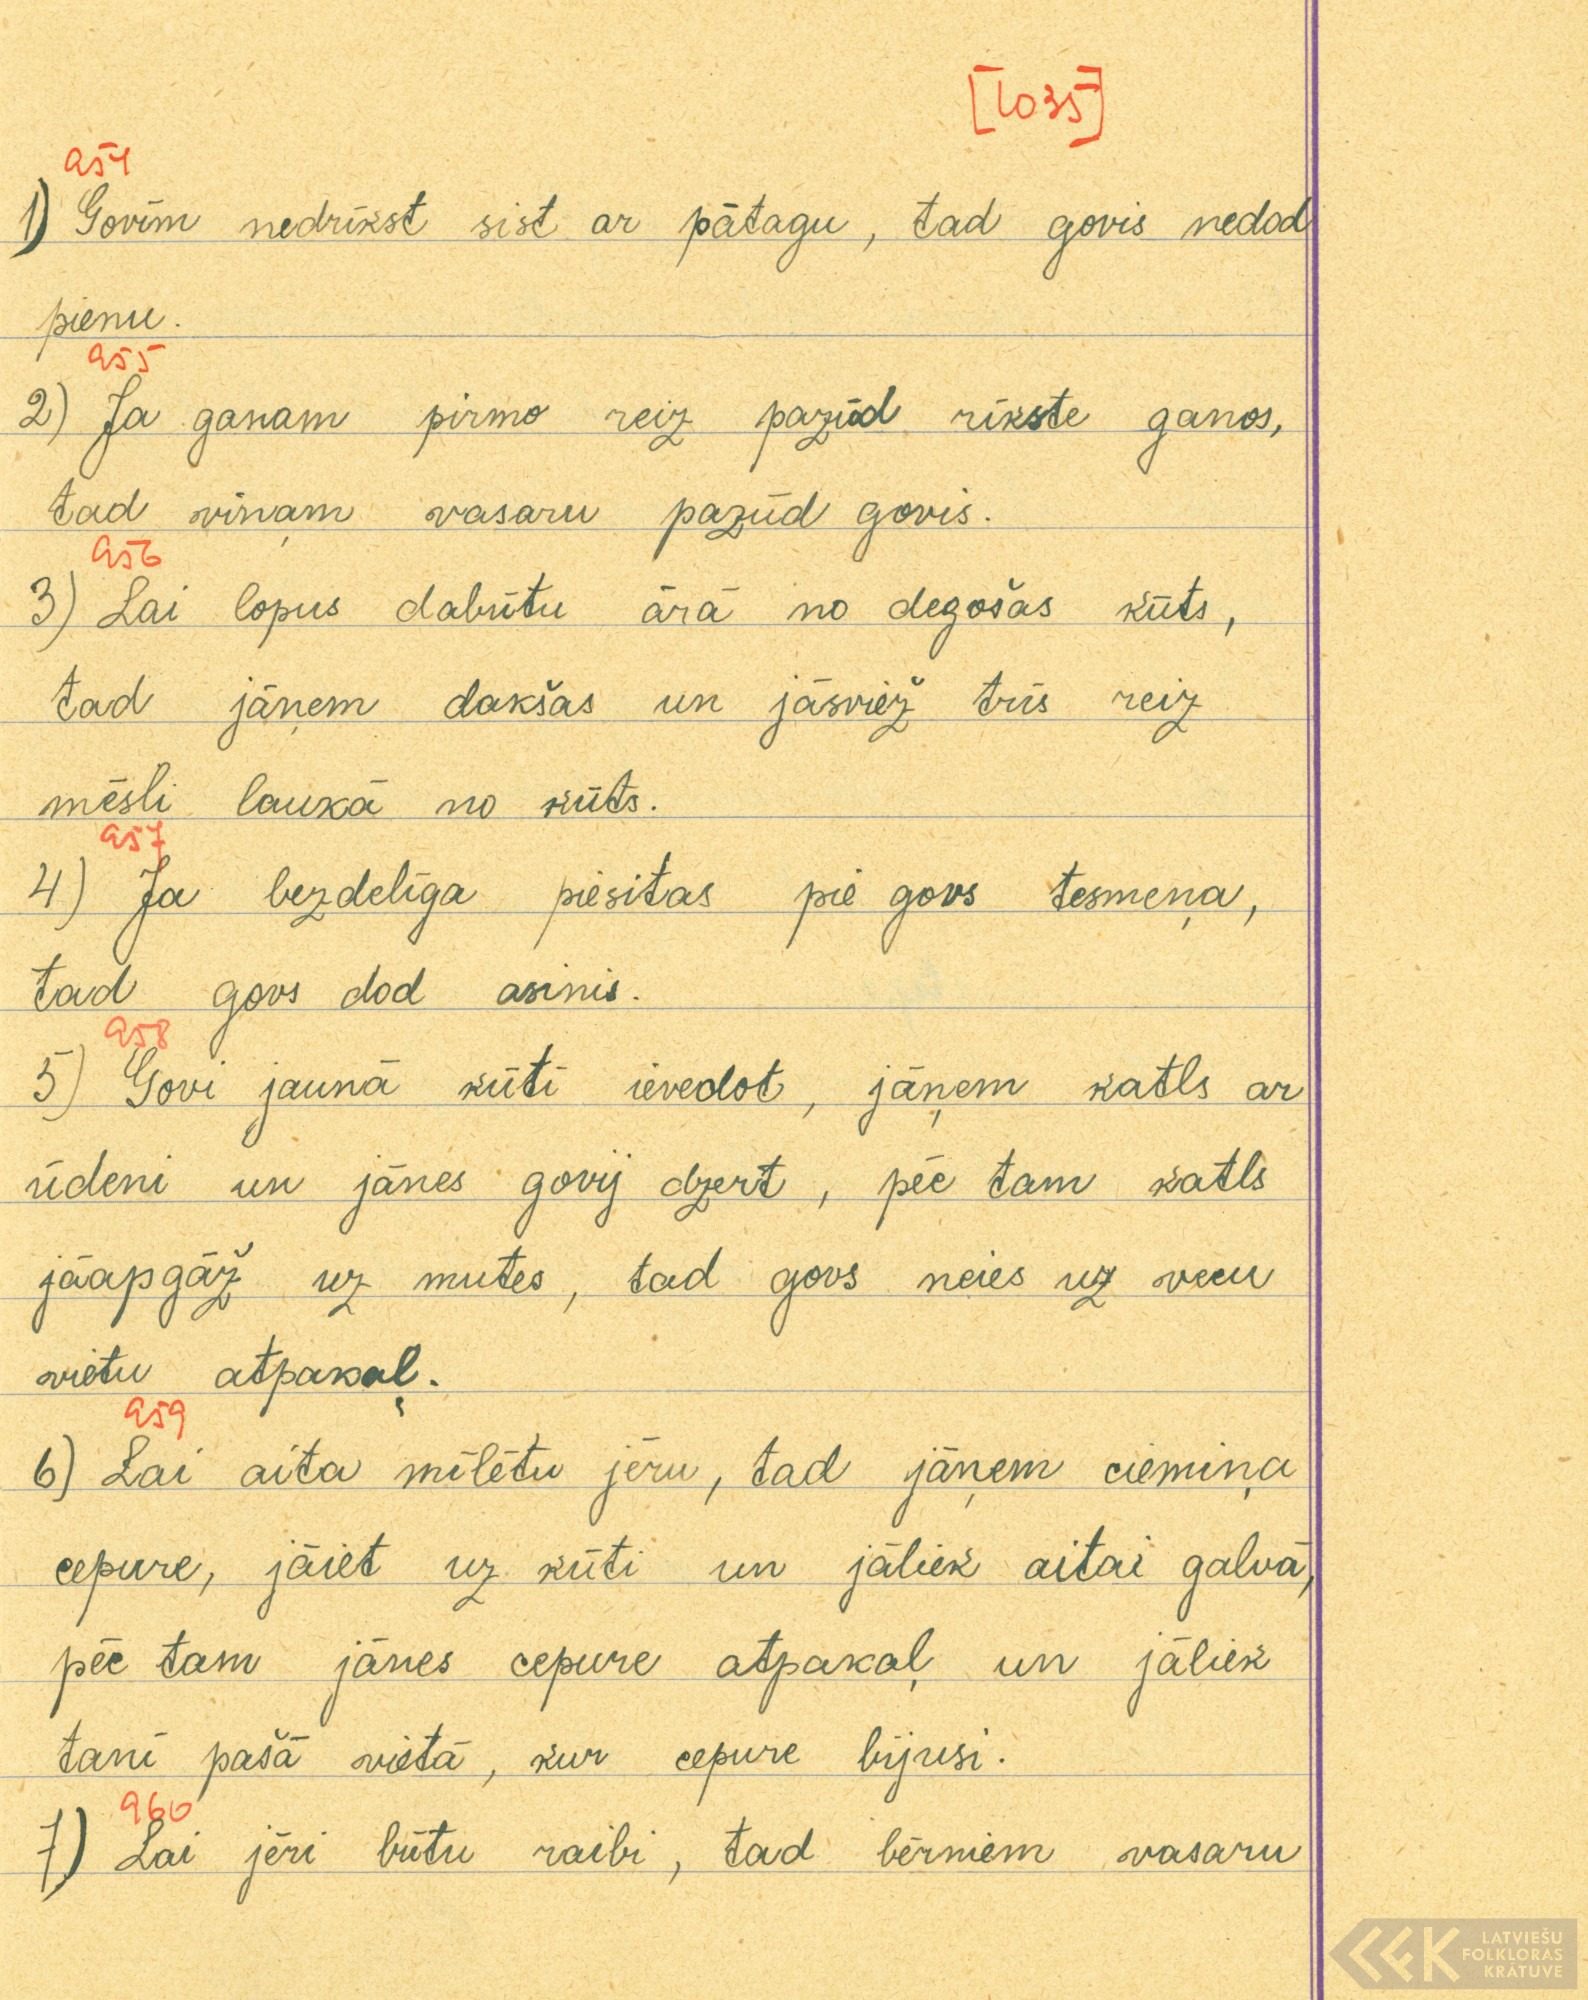 [1035]
954
1) Govīm nedrīkst sist ar pātagu, tad govis nedod
pienu.
955
2) Ja ganam pirmo reiz pazūd rīkste ganos,
tad viņam vasaru pazūd govis.
956
3) Lai lopus dabūtu ārā no degošas kūts,
tad jāņem dakšas un jāsviež trīs reiz
mēsli laukā no kūts.
957
4) Ja bezdelīga piesitas pie govs tesmeņa,
tad govs dod asinis.
958
5) Govi jaunā kūtī ievedot, jāņem katls ar
ūdeni un jānes govij dzert, pēc tam katls
jāapgāž uz mutes, tad govs neies uz vecu
vietu atpakaļ.
959
6) Lai aita mīlētu jēru, tad jāņem ciemiņa
cepure, jāiet uz kūti un jāliek aitai galvā,
pēc tam jānes cepure atpakaļ un jāliek
tanī pašā vietā, kur cepure bijusi.
960
7) Lai jēri būtu raibi, tad bērniem vasaru
LATVIEŠU
FOLKLORAS
KRĀTUVE